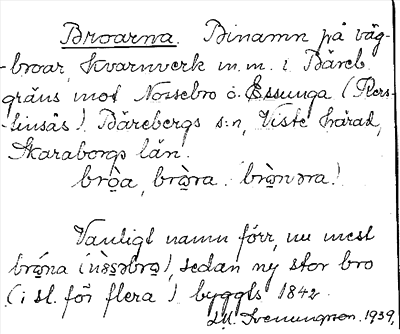 Broarna. Binamn på väg-
-broar, kvarnverk m.m. i Båreb.
gräns mot Norsebro o. Essunga (Fers-
linsås). Bårebergs s:n, Viste härad,
Skaraborgs län.
brǫ̀a, brǫ̀ra. brǫ̀nəra!
Vanligt namn förr, nu mest
brǫ́na (nǫ̀səbrǫ), sedan ny stor bro
(i st. för flera) byggts 1842.
1939.